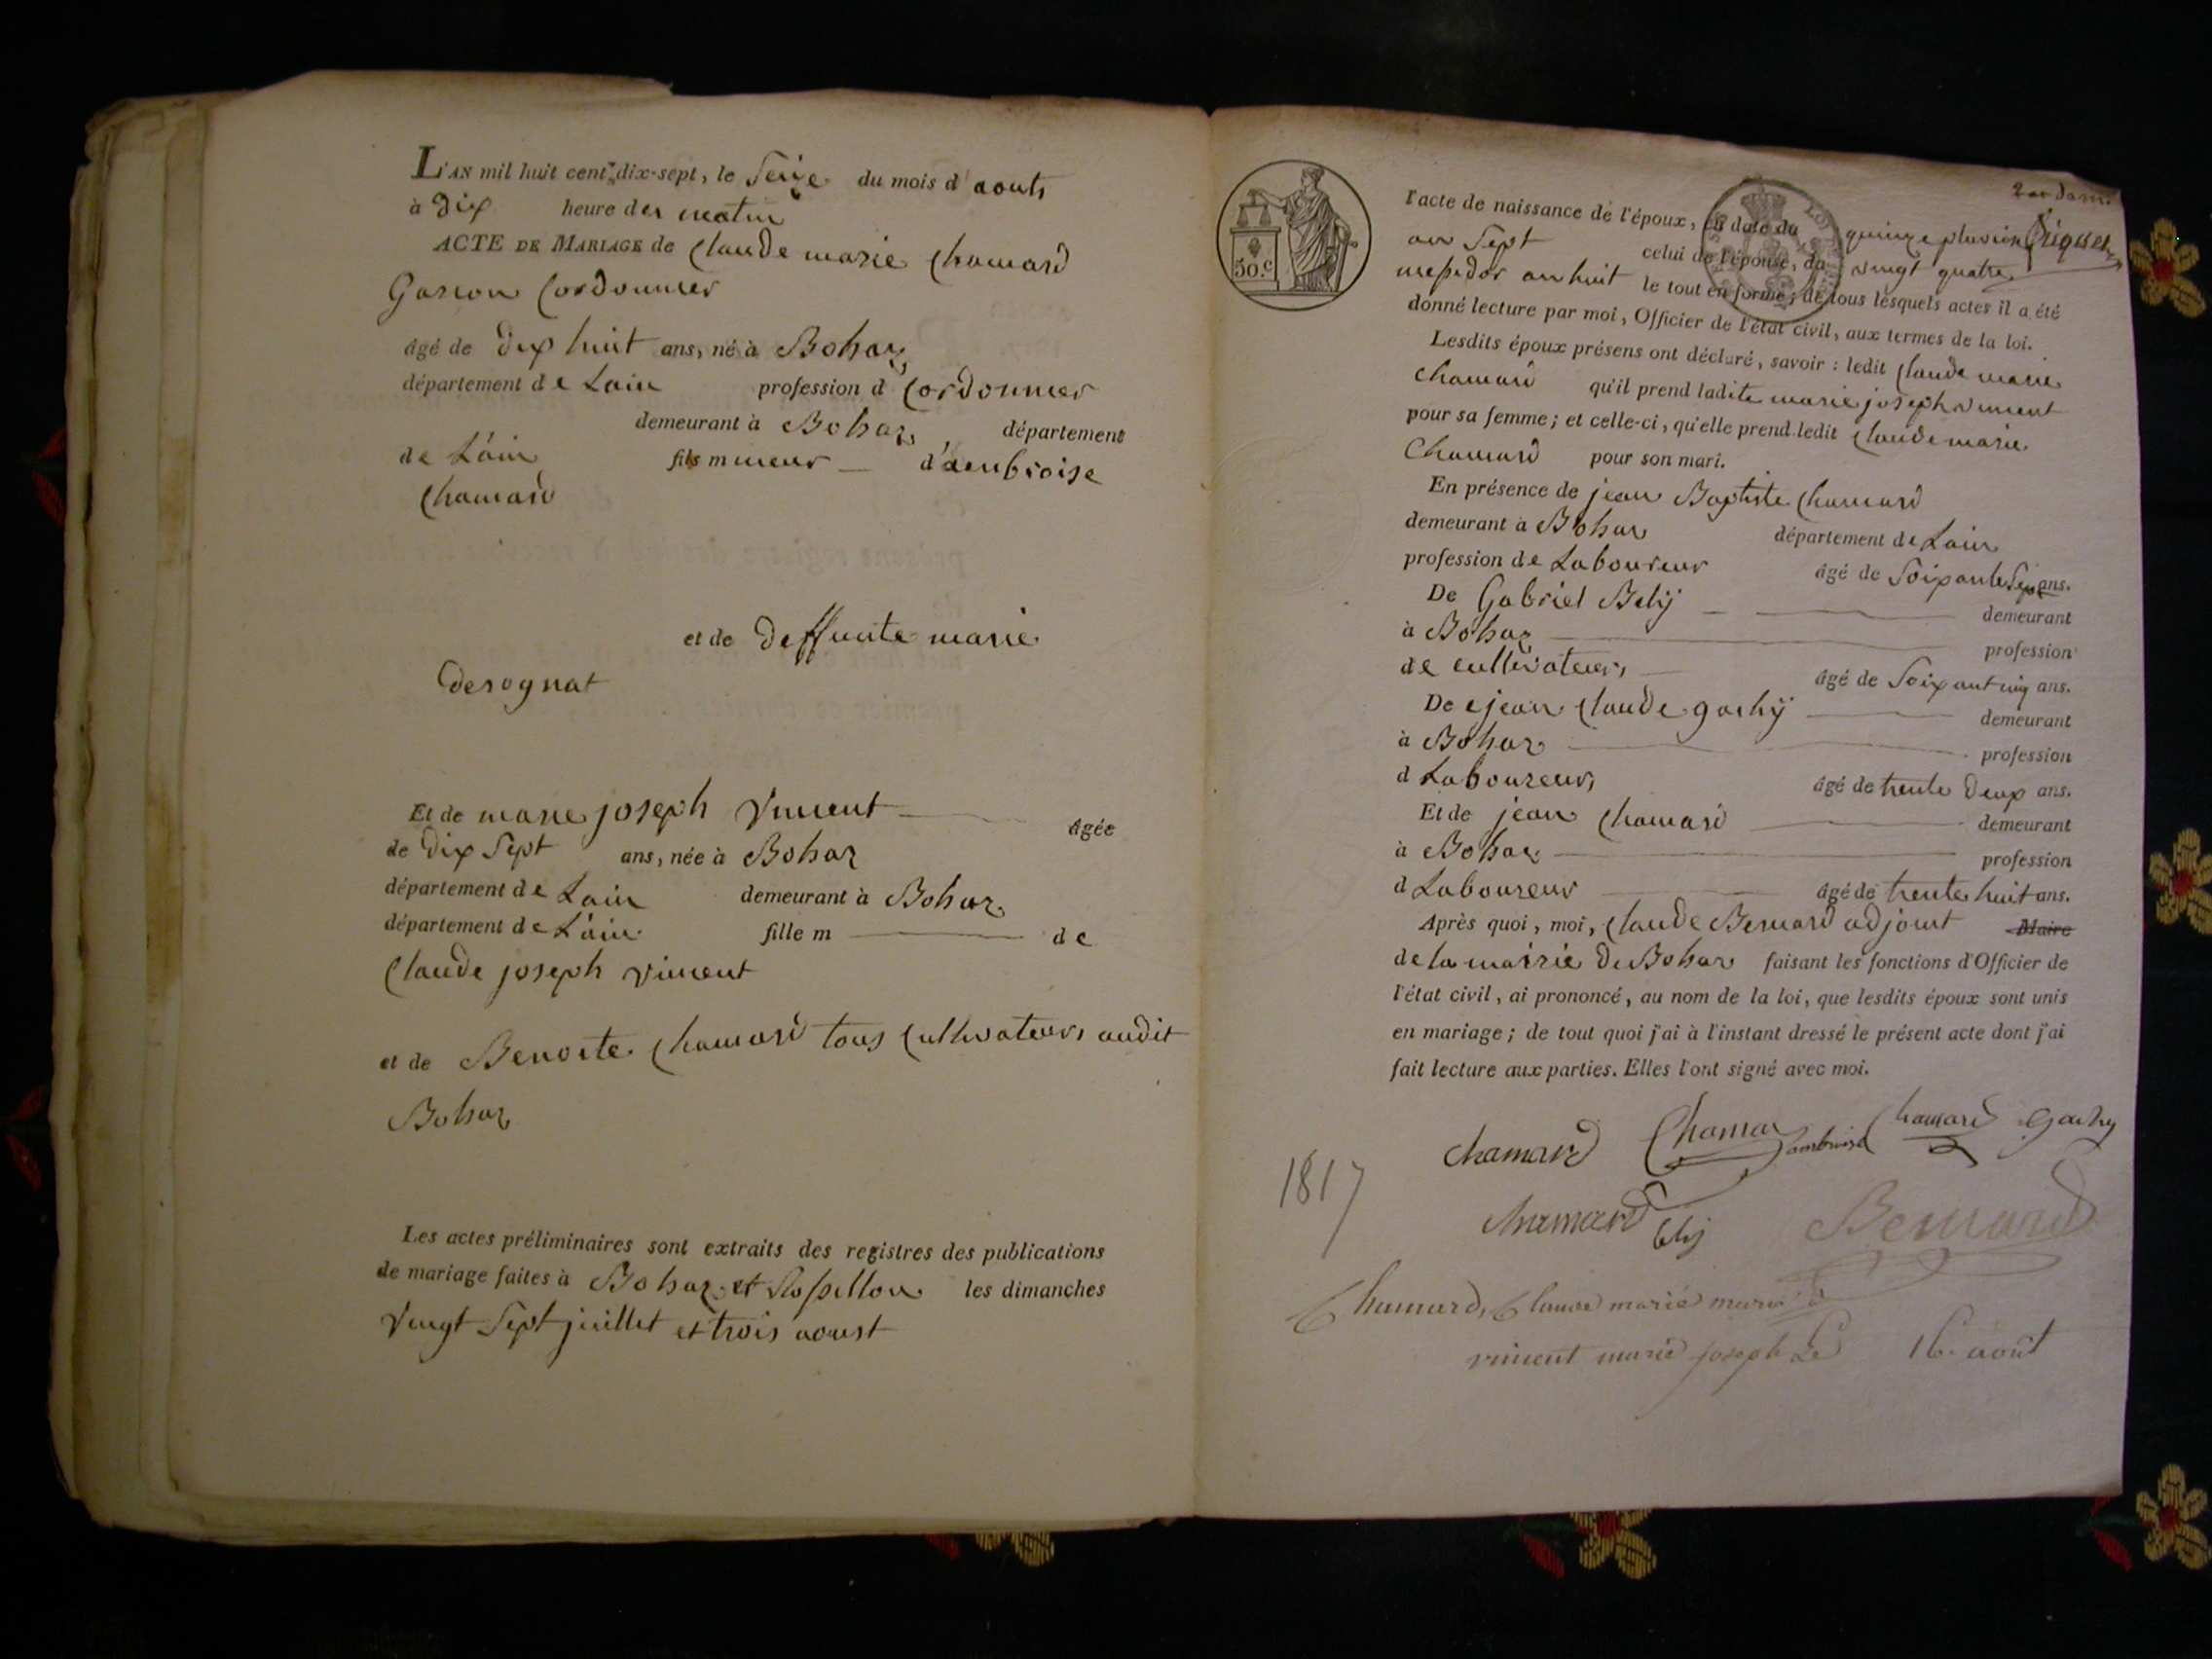 L'AN mil huit cent dix-sept, le Seize du mois d'aouts
à dix heure des matin
ACTE DE MARIAGE de Claude marie Chamard
Garson Cordonnier
âgé de dix huit ans, né à Bohaz
département de Lain profession d Cordonnier
demeurant à Bohaz, département
de L'ain fils mineur d'aenbroise
Chamard
et de deffunte marie
desognat
Et de marie joseph Vincent âgée
de dix Sept ans, née à Bohaz
département de Lain demeurant à Bohaz
département de L'ain fille m de
Claude joseph vincent
et de Benoite Chamard tous Cultivateurs audit
Bohaz
Les actes préliminaires sont extraits des registres des publications
de mariage faites à Bohaz et Rossillon les dimanches
Vingt Sept juillet et trois aoust
50.c
l'acte de naissance de l'époux, en date du quinze pluviose
an Sept celui de l'épouse, du vingt quatre
messidor an huit le tout en forme; de tous lesquels actes il a été
donné lecture par moi, Officier de l'état civil, aux termes de la loi.
Lesdits époux présens ont déclaré, savoir : ledit Claude marie
Chamard qu'il prend ladite marie joseph vincent
pour sa femme; et celle-ci, qu'elle prend ledit Claude marie
Chamard pour son mari.
En présence de jean Baptiste Chamard
demeurant à Bohaz département de Lain
profession de Laboureur âgé de Soixante Sept ans.
De Gabriel Bely demeurant
à Bohaz profession
de cultivateurs âgé de Soixant cinq ans.
De jean Claude gachy demeurant
à Bohaz profession
d Laboureurs âgé de trente deux ans.
Et de jean Chamard demeurant
à Bohaz profession
d Laboureur âgé de trente huit ans.
Après quoi, moi, Claude Bernard adjoint Maire
de la mairie de Bohaz faisant les fonctions d'Officier de
l'état civil, ai prononcé, au nom de la loi, que lesdits époux sont unis
en mariage; de tout quoi j'ai à l'instant dressé le présent acte dont j'ai
fait lecture aux parties. Elles l'ont signé avec moi.
chamard Chamar ambroise Chamard Gachy
1817
chamard Bernard
Chamard, Claude marie marié à
vincent marie joseph Le 16 août